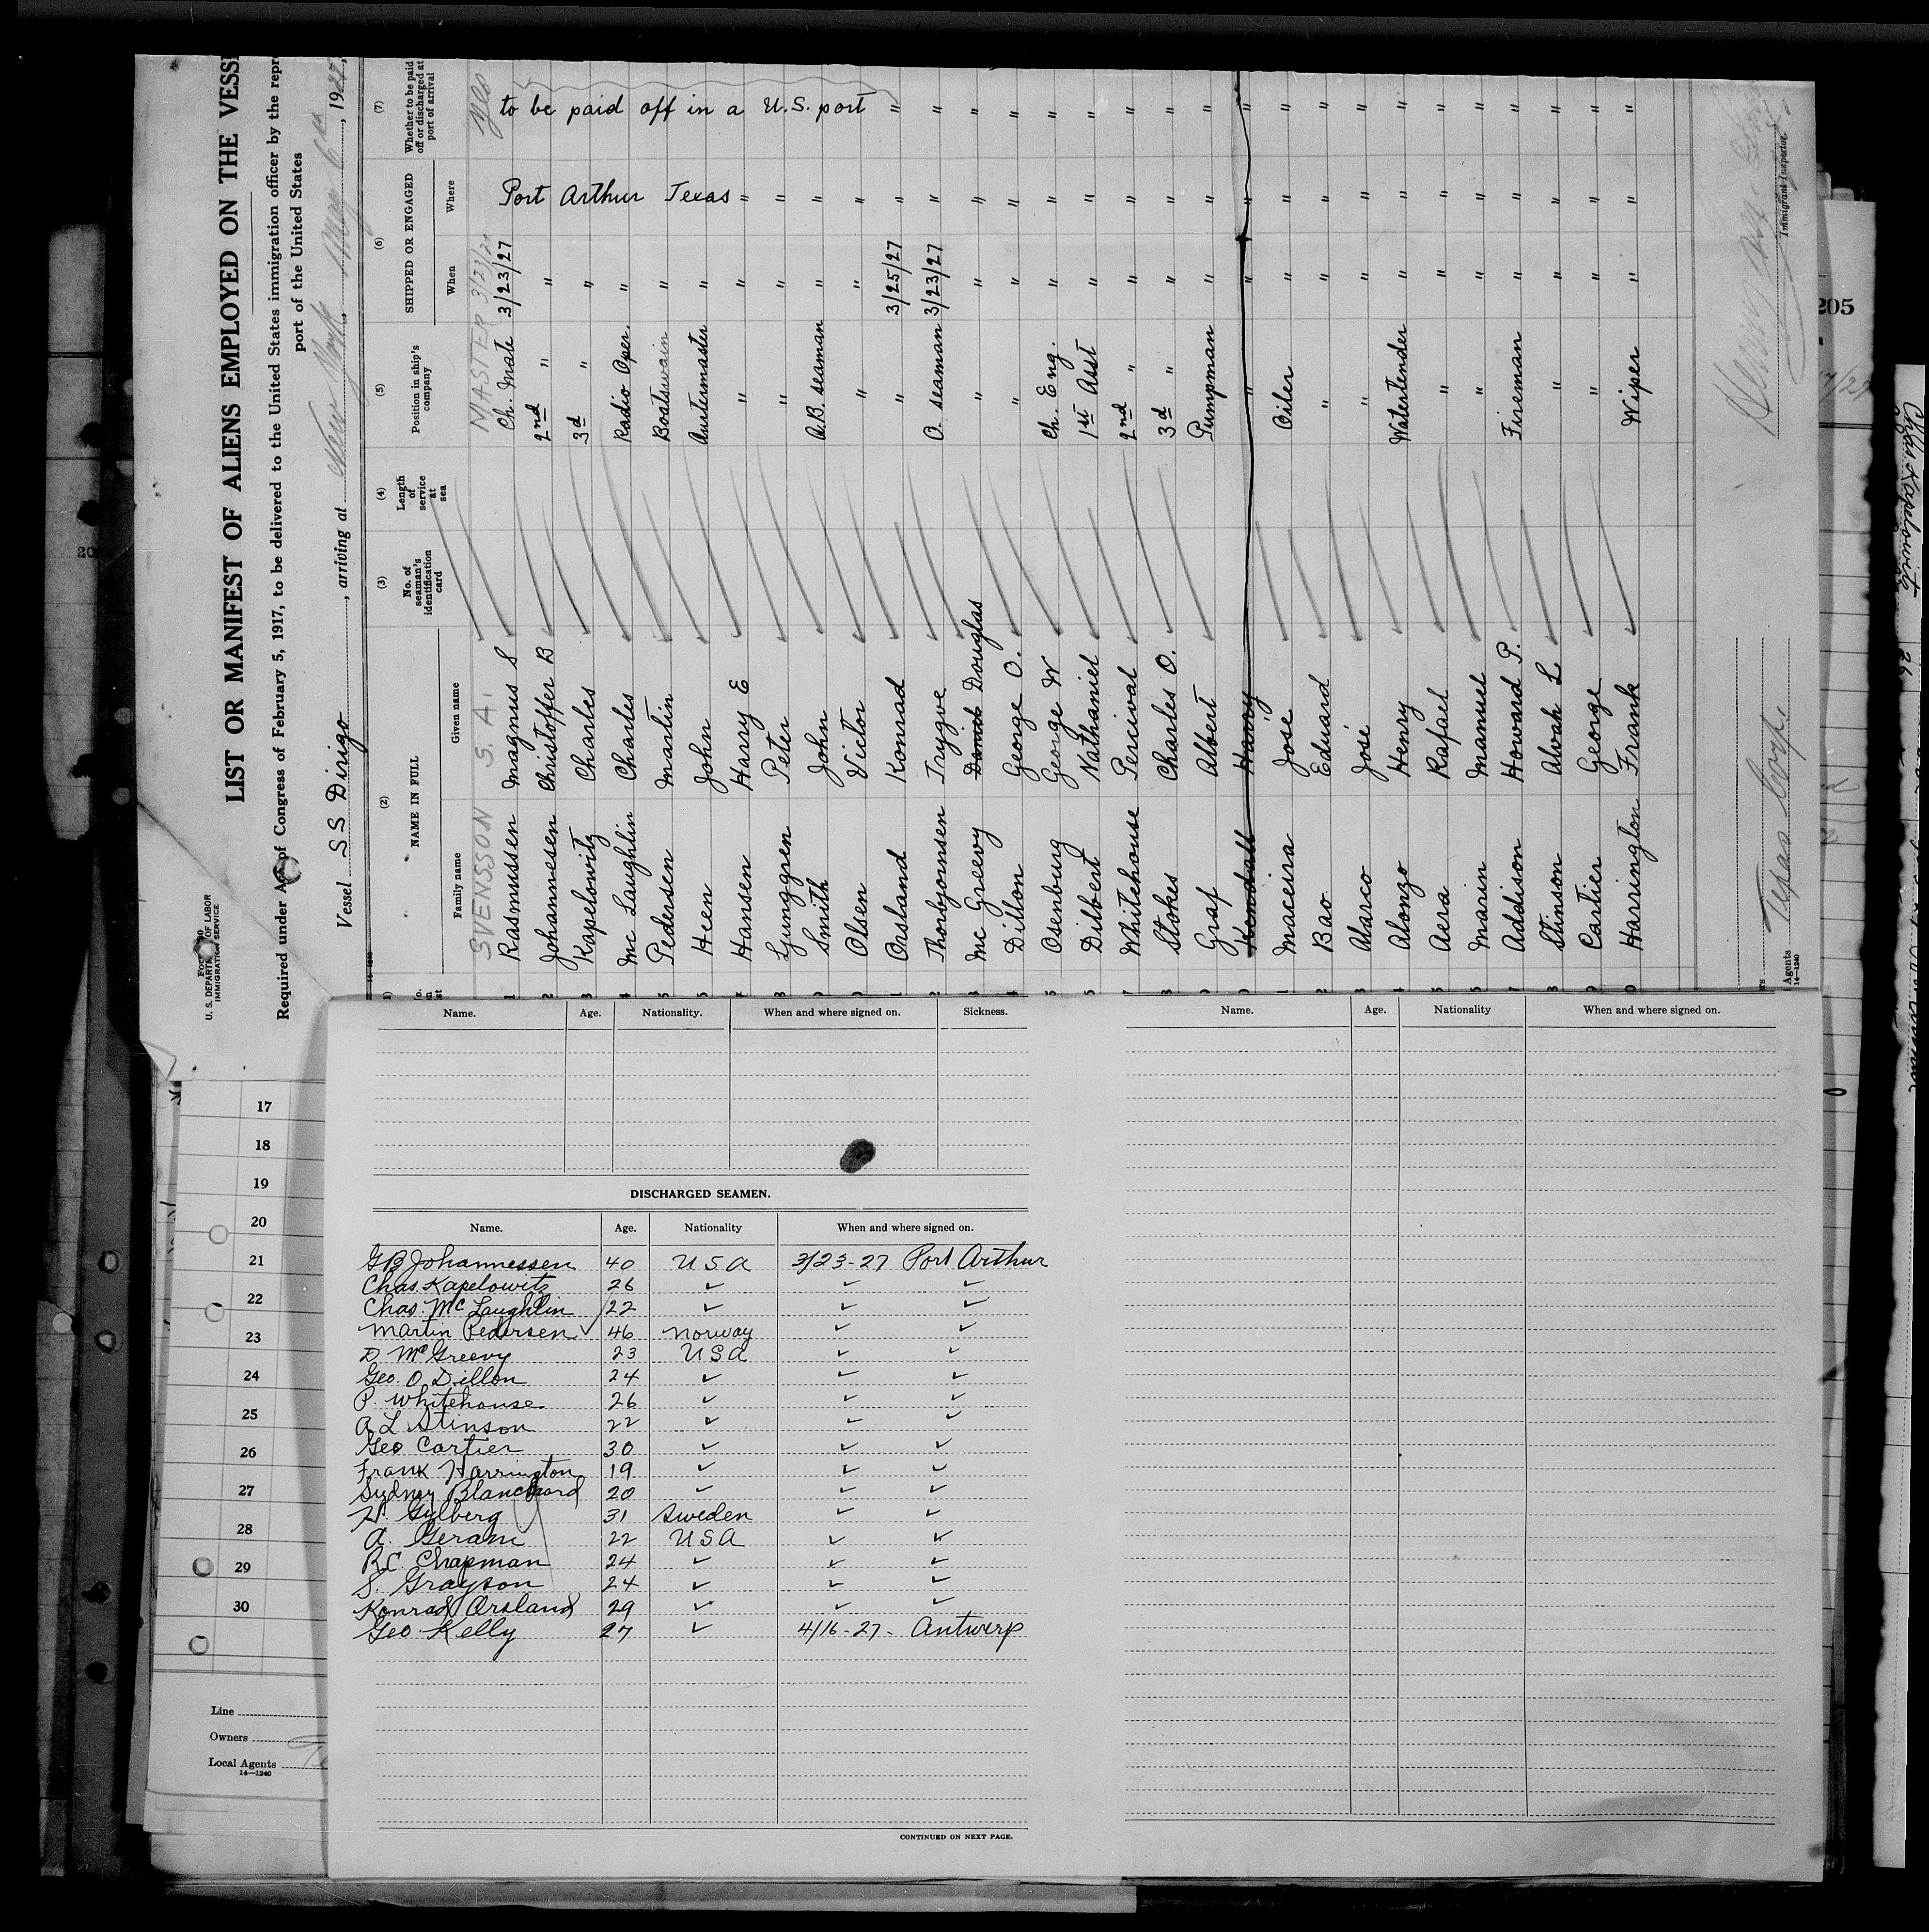 Form 680
U. S. DEPARTMENT OF LABOR
IMMIGRATION SERVICE
LIST OR MANIFEST OF ALIENS EMPLOYED ON THE VESSE
Required under Act of Congress of February 5, 1917, to be delivered to the United States immigration officer by the repr
port of the United States
Vessel S S Dirigo, arriving at New York May 6th, 1927
(2) (3) (4) (5) (6) (7)
NAME IN FULL No. of seaman's identification card Length of service at sea Position in ship's company SHIPPED OR ENGAGED Whether to be paid off or discharged at port of arrival
Family name Given name When Where
SVENSSON S. A. MASTER 3/23/27 yes
1 Rasmussen Magnus S Ch. Mate 3/23/27 Port Arthur Texas to be paid off in a U.S. port
2 Johannesen Christoffer B 2nd " "
3 Kapelowitz Charles 3d " "
4 Mc Laughlin Charles Radio Oper. "
5 Pedersen Martin Boatswain "
Heen John "
7 Hansen Harry E " " "
8 Ljunggren Peter " " "
9 Smith John A.B. seaman " "
Olsen Victor " " "
1 Orsland Konrad " 3/25/27 " "
2 Thorbjornsen Trygve O. seaman 3/23/27 " "
3 Mc Greevy Daniel Douglas " " " "
4 Dillon George O. " " " "
5 Osenburg George W Ch. Eng. " " "
Dilbert Nathaniel 1st Asst " " "
7 Whitehouse Percival 2nd " " " "
8 Stokes Charles O. 3d " " " "
9 Graf Albert Pumpman " " "
0 Kendall Harry " " " "
1 Maceira José Oiler " " "
2 Bao Eduard " " " "
3 Alarco José " " " "
4 Alonzo Henry Watertender " " "
5 Aera Rafael " " " "
Marin Manuel " " " "
7 Addison Howard P. Fireman " " "
8 Stinson Alvah L " " " "
9 Cartier George " " " "
0 Harrington Frank Wiper " " "
Texas Corp.
Agents
14—1240
Immigrant Inspector.
205
Chas Kapelowitz 26
Name. Age. Nationality. When and where signed on. Sickness.
Name. Age. Nationality When and where signed on.
DISCHARGED SEAMEN.
Name. Age. Nationality When and where signed on.
GB Johannessen 40 USA 3/23-27 Port Arthur
Chas. Kapelowitz 26 ✓ ✓ ✓
Chas. Mc Laughlin 22 ✓ ✓ ✓
Martin Pedersen 46 Norway ✓ ✓
D McGreevy 23 USA ✓ ✓
Geo. O Dillon 24 ✓ ✓ ✓
P. Whitehouse 26 ✓ ✓ ✓
A L Stinson 22 ✓ ✓ ✓
Geo Cartier 30 ✓ ✓ ✓
Frank Harrington 19 ✓ ✓ ✓
Sydney Blanchard 20 ✓ ✓ ✓
H. Gylberg 31 Sweden ✓ ✓
A. Gerani 22 USA ✓ ✓
R.C. Chapman 24 ✓ ✓ ✓
S. Grayson 24 ✓ ✓ ✓
Konrad Orsland 29 ✓ ✓ ✓
Geo. Kelly 27 ✓ 4/16-27- Antwerp
CONTINUED ON NEXT PAGE.
17
18
19
20
21
22
23
24
25
26
27
28
29
30
Line
Owners
Local Agents
14—1240